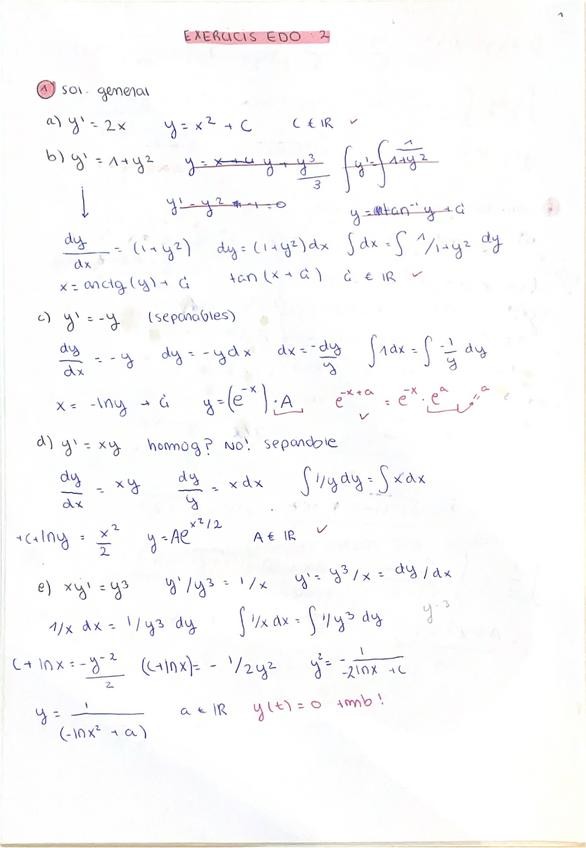 1
EXERCICIS EDO 2
1 sol. general
a) y' = 2x y = x² + C C ∈ ℝ ✓
b) y' = 1+y² y = x + y + y³/3 ∫y' = ∫1/(1+y²)
y = tan⁻¹ y + C
↓
dy/dx = (1+y²) dy = (1+y²)dx ∫dx = ∫ 1/1+y² dy
x = arctg(y) + C tan(x + C) C ∈ ℝ ✓
c) y' = -y (separables)
dy/dx = -y dy = -ydx dx = -dy/y ∫1dx = ∫-1/y dy
x = -lny + C y = (e^-x)·A e^-x+a = e^-x · e^a a
✓
d) y' = xy homog? NO! separable
dy/dx = xy dy/y = xdx ∫1/y dy = ∫xdx
+C+lny = x²/2 y = Ae^x²/2 A ∈ ℝ ✓
e) xy' = y³ y'/y³ = 1/x y' = y³/x = dy/dx
1/x dx = 1/y³ dy ∫1/x dx = ∫1/y³ dy y⁻³
C + lnx = -y⁻²/2 (C+lnx) = -1/2y² y² = -1/-2lnx + C
y = 1/(-lnx² + a) a ∈ ℝ y(t) = 0 tmb!